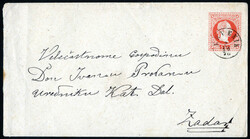 Velečastnome Gospodinu
Don Ivanu Prodanu
uredniku Kat. Dal.
Zadar